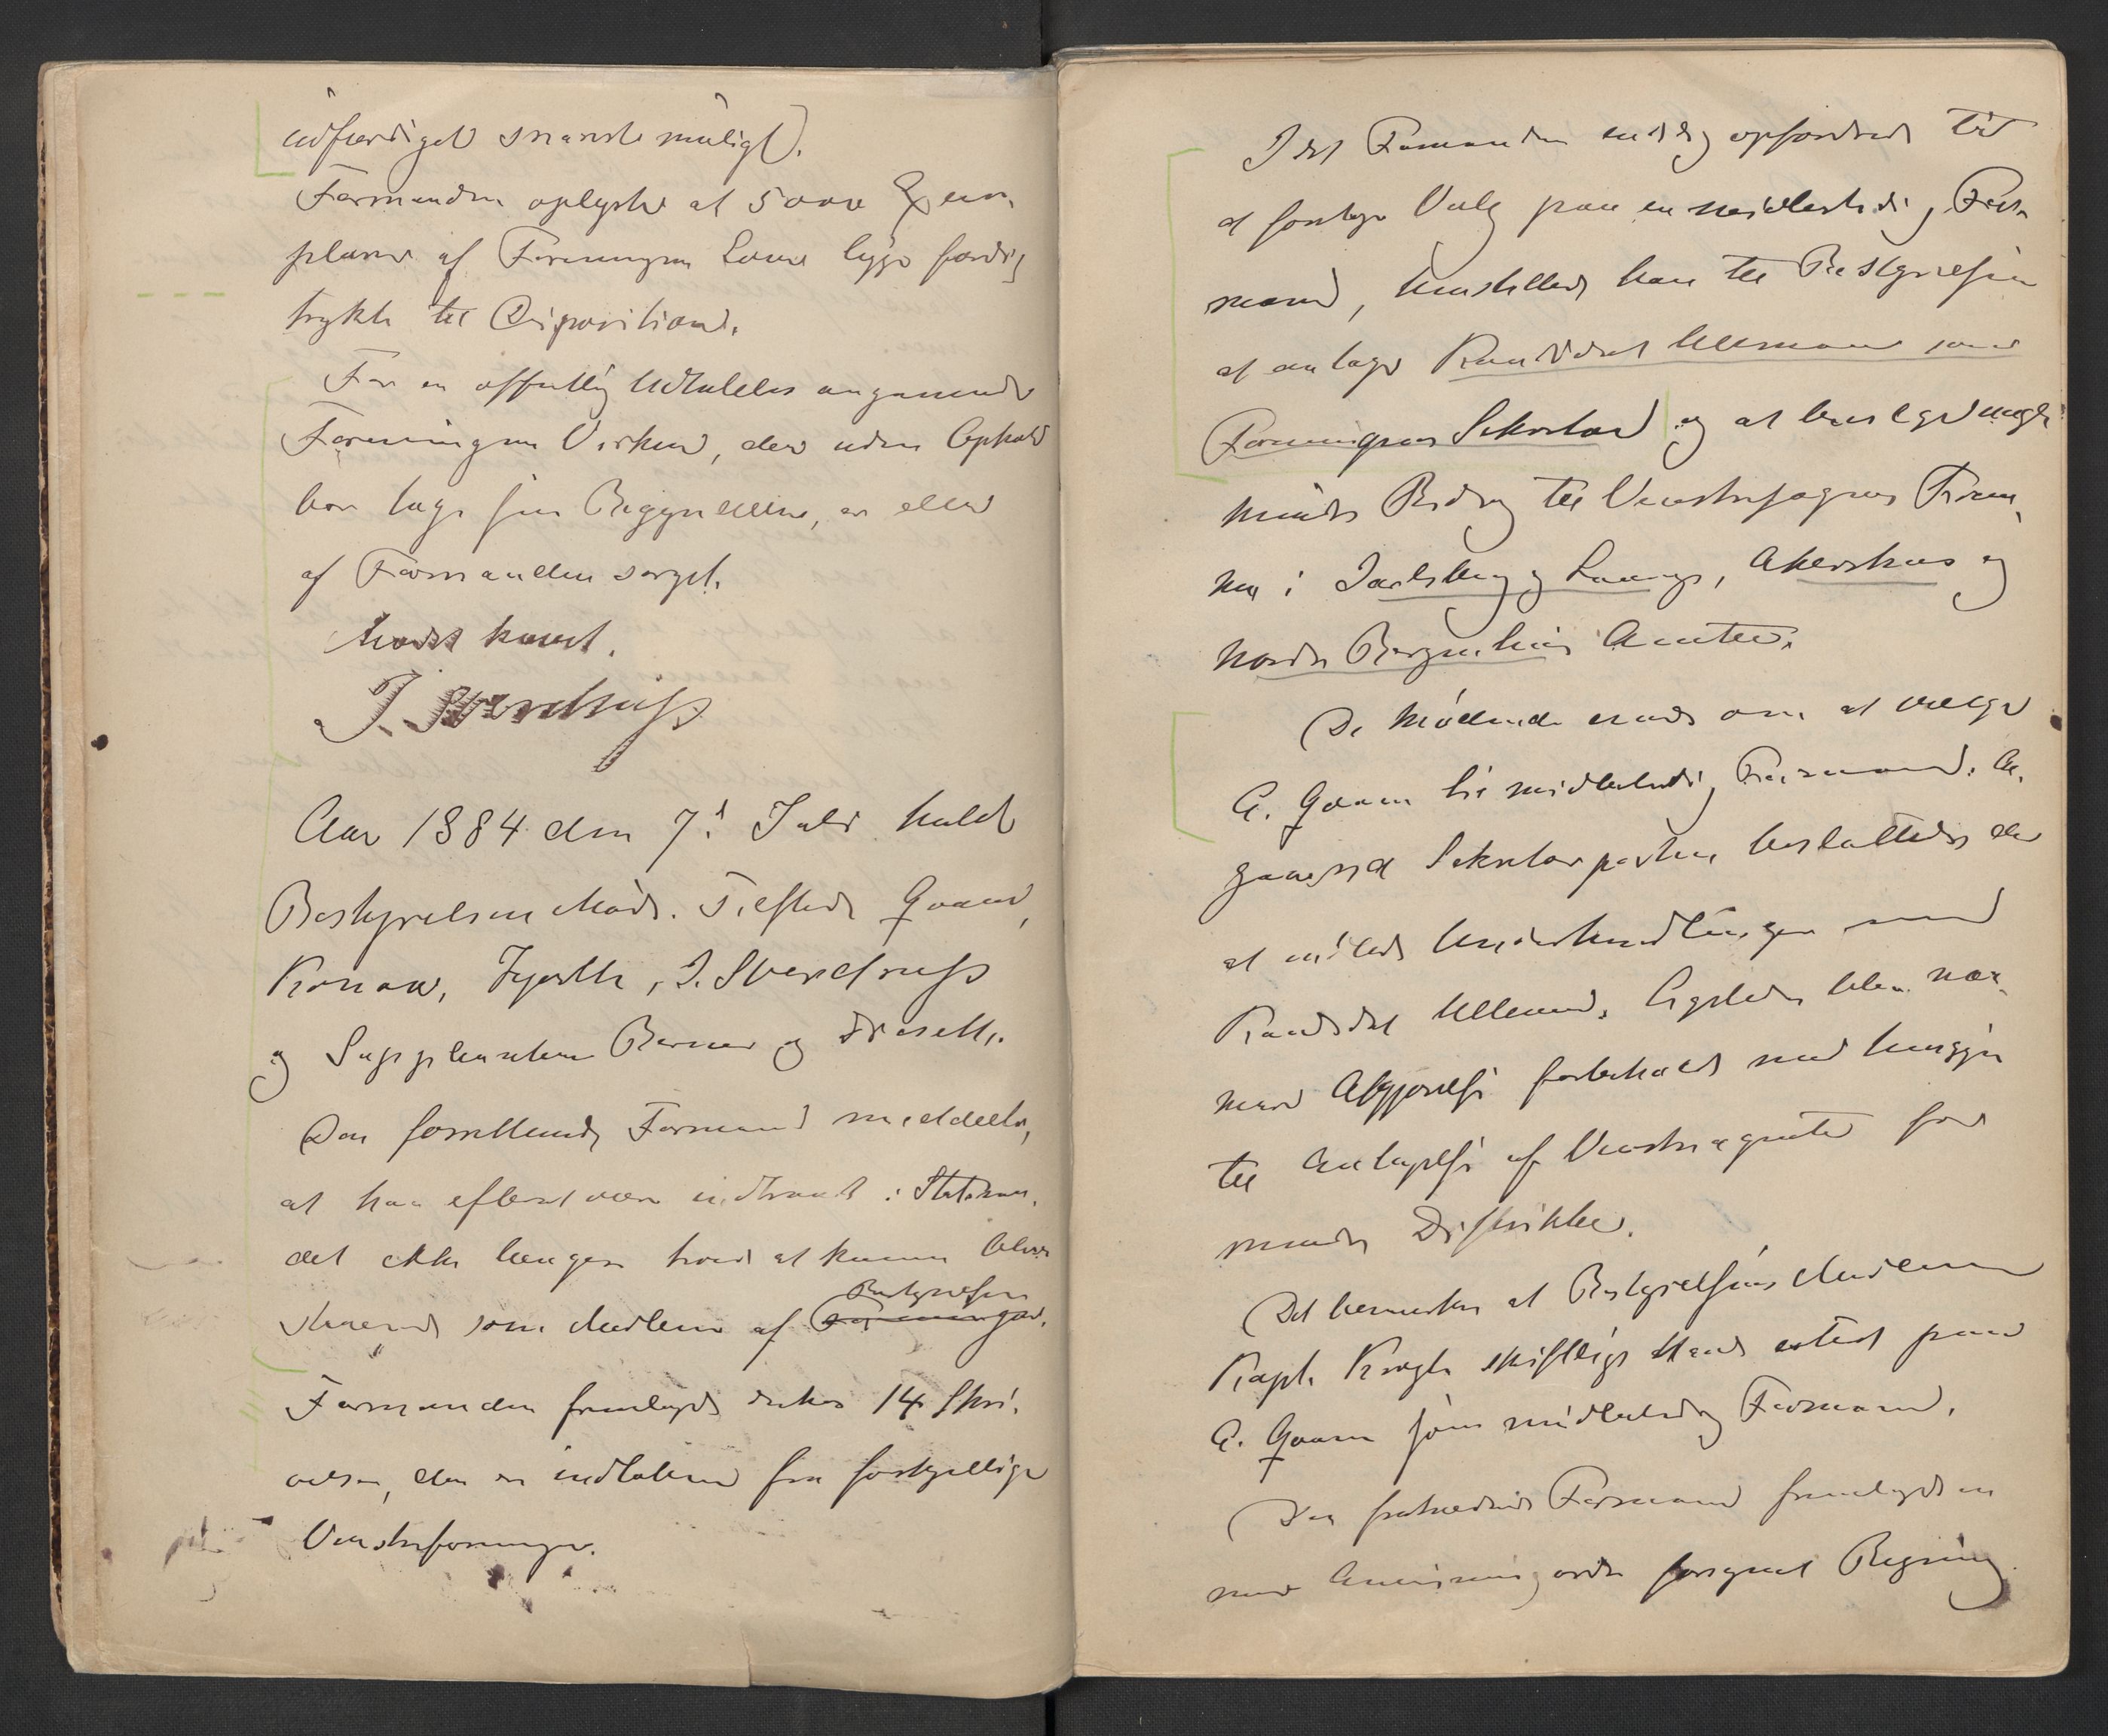 udfærdiget snarest muligt.
Formanden oplyste at 5000 Exem-
plarer af Foreningens Love ligge færdig
trykte til Disposition.
For en offentlig Udtalelse angaaende
Foreningens Virken, der uden Ophold
bør tage sin Begyndelse, er eller
af Formanden sørget.
Mødet hævet.
J. Sverdrup
Aar 1884 den 7de Juli holdt
Bestyrelsen Møde. Tilstede Qvam,
Konow, Hjorth, J. Sverdrup
og Suppleanterne Berner og
Den Formand meddeelte,
at han efter at være indtraadt i Statsraa-
det ikke længere troede at kunne
staaende som Medlem af Bestyrelsen Foreningen.
Formanden fremlagde 14 Skri-
velser, der er indløbne fra forskjellige
Venstreforeninger.
Idet Formanden endelig opfordrede til
at foretage Valg paa en midlertidig For-
mand, henstillede han til Bestyrelsen
at antage Kandidat Ullmann som
Foreningens Sekretær og at bevilge nogle
mindre Bidrag til Venstresagens Frem-
me i Jarlsberg og Laurvigs, Akershus og
Nordre Bergenhus Amter.
De Mødende enedes om at vælge
A. Qvam til midlertidig Formand. An-
gaaende Sekretærposten besluttedes det
at indlede Underhandlinger med
Kandidat Ullmann. Ligeledes blev nær-
mere Afgjørelse forbeholdt med Hensyn
til Antagelse af Venstreagenter for
mindre Distrikter.
Det bemærkes at Bestyrelsens Medlem
Kapt. Krogh skriftligt havde voteret paa
A. Qvam som midlertidig Formand.
Den fratrædende Formand fremlagde en
med Anvisningsordre forsynet Regning